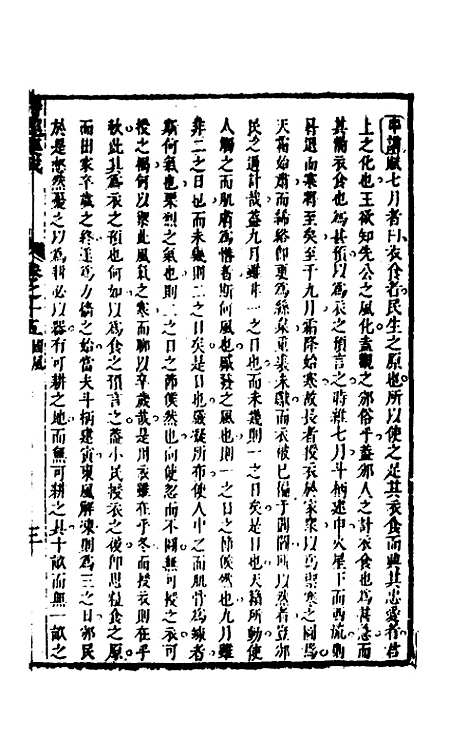 申講風七月者曰衣食者民生之原也所以使之足其衣食而興其忠愛者君
上之化也王欲知先公之風化盍觀之邠俗乎蓋邠人之計衣食也為甚急而
其備衣食也為甚預以為衣之預言之時維七月斗柄建申火星下而西流則
暑退而寒將至矣至于九月霜降始寒故長者授衣於家眾以為禦寒之圖焉
天霜始肅而絺綌仰更為絲枲重裘未獻而衣被已偏于閭閻所以然者豈邠
民之過計哉蓋九月雖非一之日也而未幾則一之日矣是日也天籟所動使
人觸之而肌膚為慘者斯何風也觱發之風也一之日之節候然也九月雖
非二之日也而未幾則二之日矣是日也寒凝所布使人中之而肌骨為練者
斯何氣也栗烈之氣也二之日之節候然也向使忽而不圖無可授之衣可
授之褐何以禦此風氣之寒而聊以卒歲哉是用衣雖在乎冬而授衣則在乎
秋此其為衣之預也何如以為食之預言之蓋小民授衣之後仰思粒食之原
而田家卒歲之終是為力穡之始當夫斗柄建寅東風解凍則為三之日邠民
於是惄然憂之以為耕必以器有可耕之地而無可耕之具十畝而無一畝之
卷之十五 國風